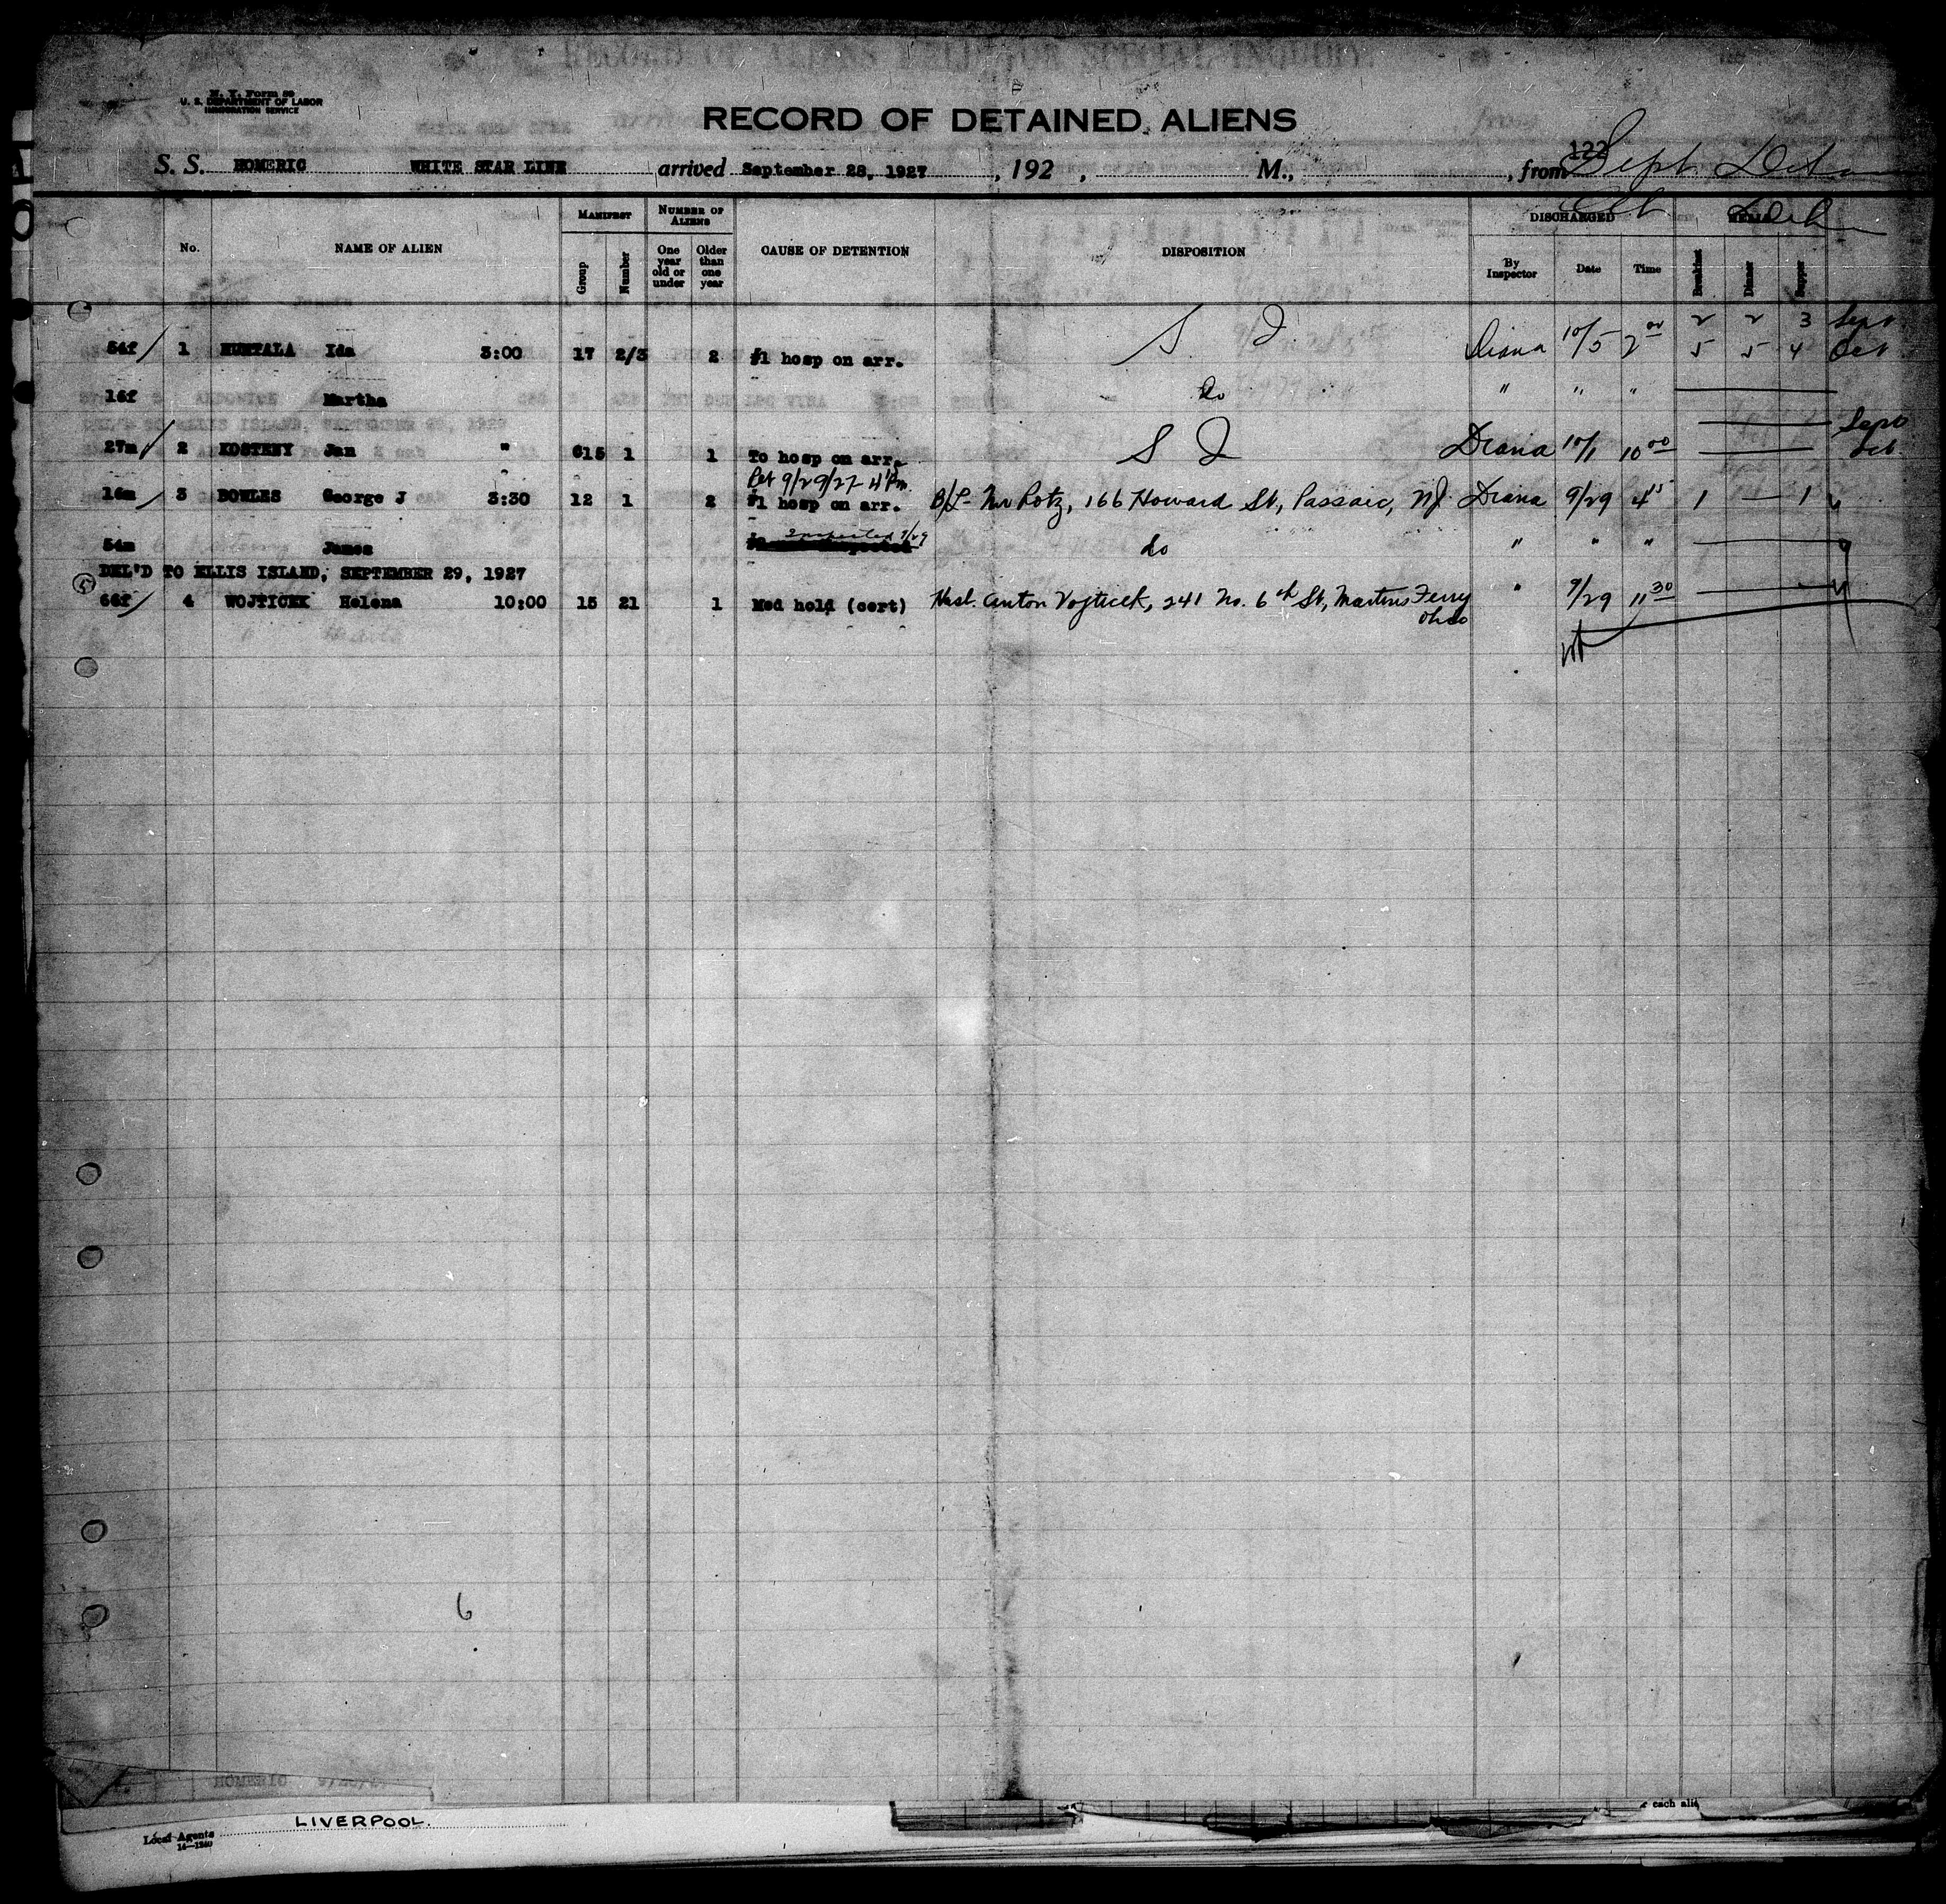 N. Y. Form 50
U. S. DEPARTMENT OF LABOR
IMMIGRATION SERVICE
RECORD OF DETAINED ALIENS
S. S. HOMERIC WHITE STAR LINE arrived September 28, 1927, 192 , M., , from
122
Sept Det
Oct Det
No. NAME OF ALIEN MANIFEST Group Number NUMBER OF ALIENS One year old or under Older than one year CAUSE OF DETENTION DISPOSITION DISCHARGED By Inspector Date Time MEALS Breakfast Dinner Supper
2 2 3 Sept
54f 1 HUHTALA Ida 3:00 17 2/3 2 #1 hosp on arr. S I Diana 10/5 2 00 5 5 4 Oct
16f Martha do " " "
Sept
27m 2 KOSTENY Jan " 615 1 1 To hosp on arr. S I Diana 10/1 10 00 Oct
Ret 9/29/27 4 Pm
16m 3 BOWLES George J 3:30 12 1 2 #1 hosp on arr. B/L Mr Rotz, 166 Howard St, Passaic, NJ Diana 9/29 4 45 1 — 1
inspected 9/29
54m James do " " "
DEL'D TO ELLIS ISLAND, SEPTEMBER 29, 1927
5
66f 4 WOJTICEK Helena 10:00 15 21 1 Med hold (cert) Husb. Anton Vojticek, 241 No. 6th St, Martins Ferry Ohio " 9/29 11 30
6
HOMERIC
LIVERPOOL.
Local Agents
14—1240
each alie